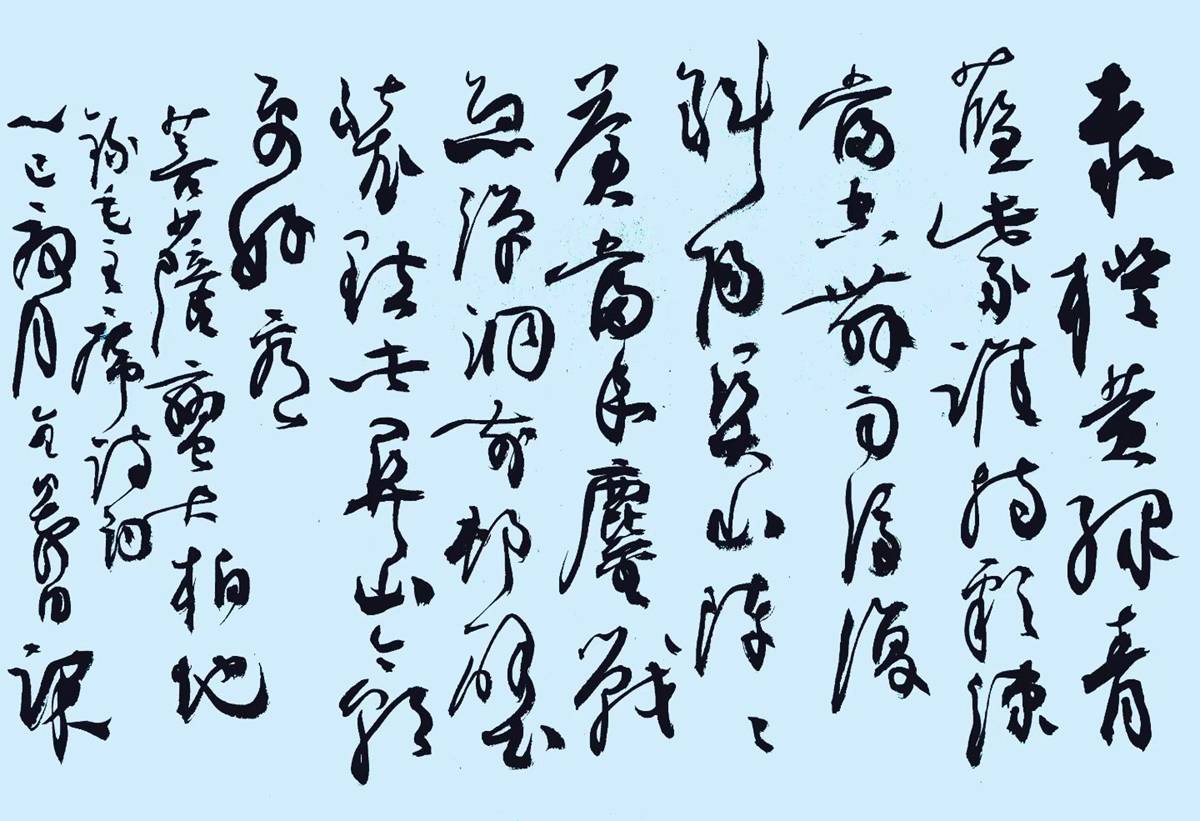 赤橙黄绿青
蓝紫谁持彩练
當空舞雨后復
斜阳关山阵々
苍當年鏖戰
急弹洞前村壁
装点此关山今朝
更好看
菩萨蠻大柏地
録毛主席诗词
乙巳 月 课